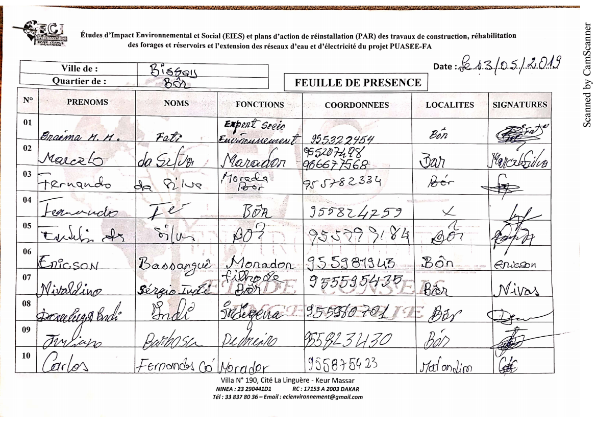 ECI
Études d'Impact Environnemental et Social (EIES) et plans d'action de réinstallation (PAR) des travaux de construction, réhabilitation
des forages et réservoirs et l'extension des réseaux d'eau et d'électricité du projet PUASEE-FA
Ville de : Bissau
Date : Le 13/05/2019
Quartier de : Bôr
FEUILLE DE PRESENCE
N° PRENOMS NOMS FONCTIONS COORDONNEES LOCALITES SIGNATURES
01 Braima M. M. Fati Expert Socio Environnement 955322454 Bôr
02 Marcelo da Silva Morador 955207498 966677568 Bôr
03 Fernando da Silva Morada Bôr 955782334 Bôr
04 Fernando Té Bôr 955824259 X
05 Silva Bôr 955799184 Bôr
06 Ericson Bassangué Morador 955981945 Bôr ericson
07 Nivaldino Sérgio Indi Filho de Bôr 955595435 Bôr Nivas
08 Indi 955930701 Bôr
09 Juliano Barbosa Pedreiro 955823430 Bôr
10 Carlos Fernandes Có Morador 955875423
Villa N° 190, Cité La Linguère - Keur Massar
NINEA : 23 2904401 RC : 17153 A 2003 DAKAR
Tél : 33 837 80 36 – Email : ecienvironnement@gmail.com
Scanned by CamScanner